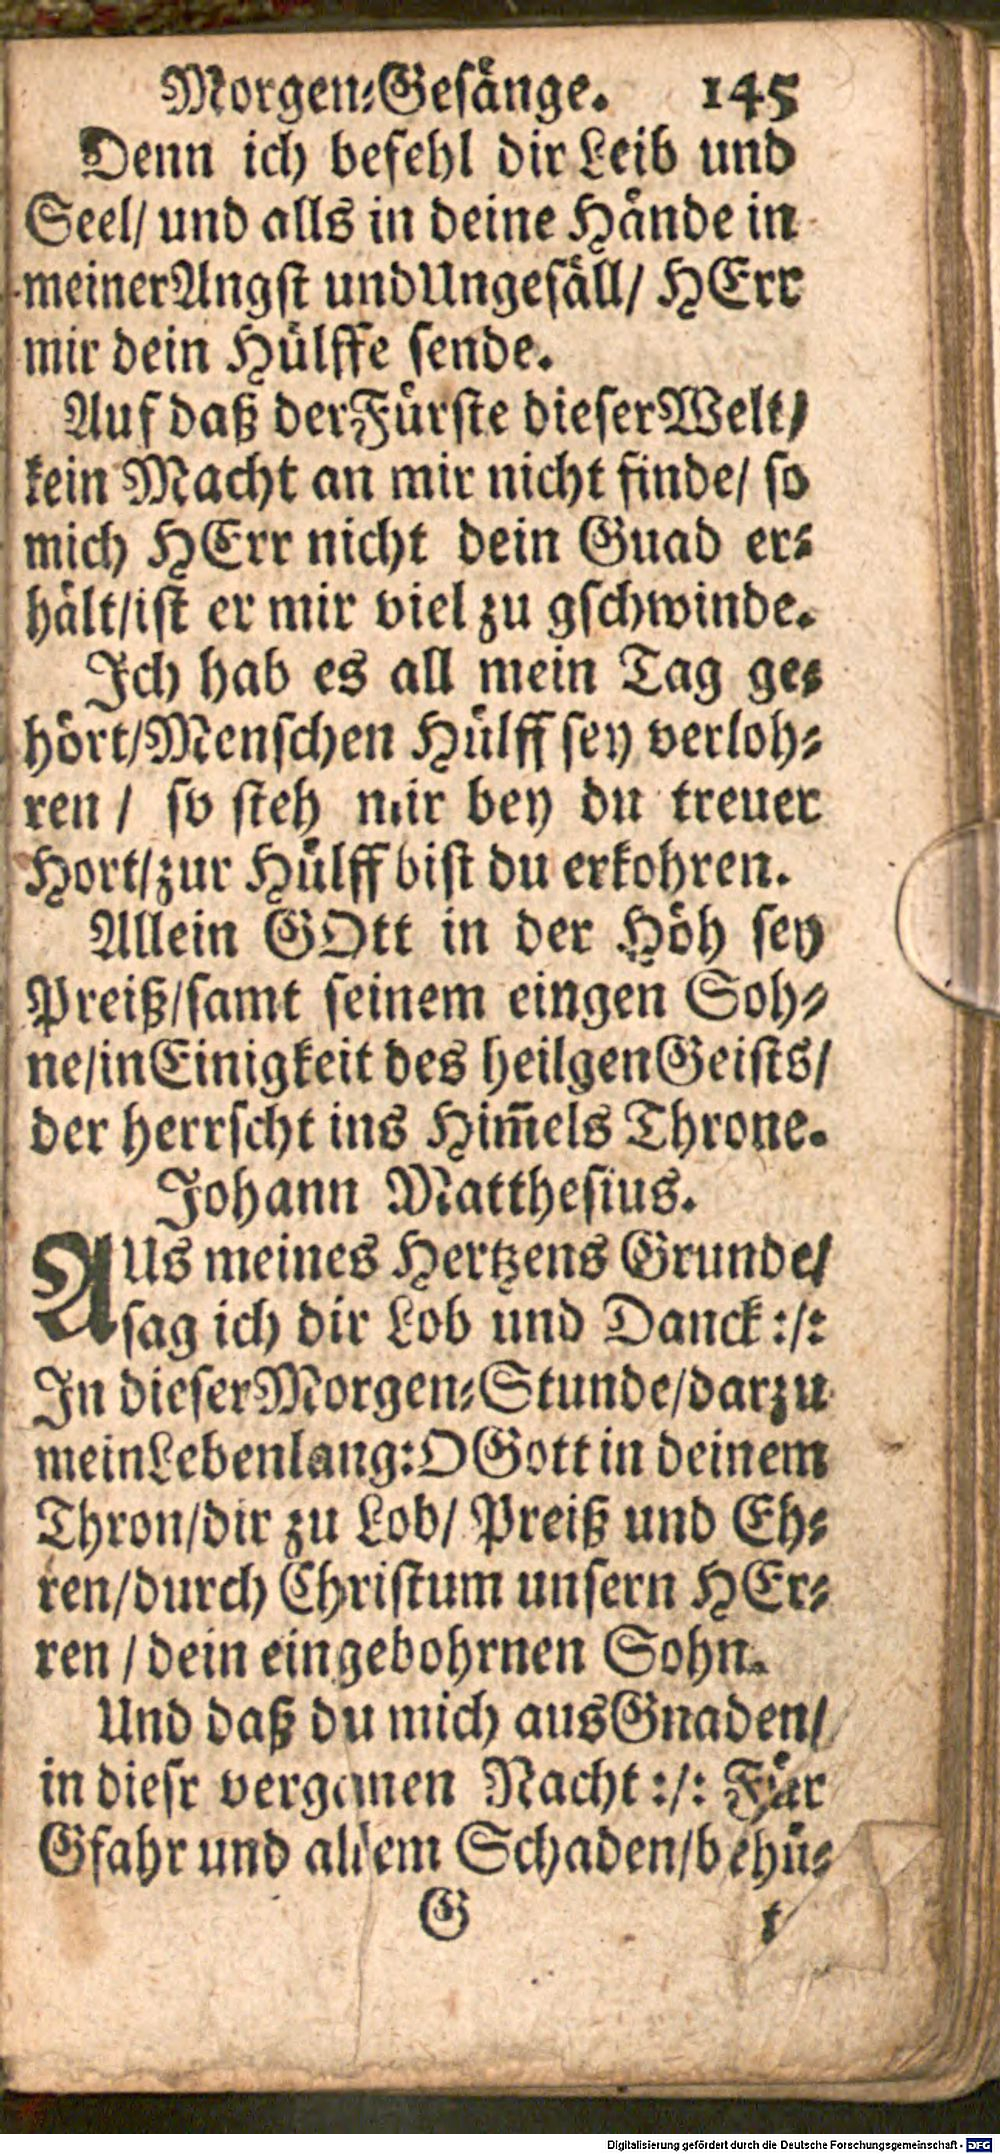 Morgen-Gesänge. 145
Denn ich befehl dir Leib und
Seel/ und alls in deine Hände in
meiner Angst und Ungefäll/ HErr
mir dein Hülffe sende.
Auf daß der Fürste dieser Welt/
kein Macht an mir nicht finde/ so
mich HErr nicht dein Guad er-
hält/ist er mir viel zu gschwinde.
Ich hab es all mein Tag ge-
hört/Menschen Hülff sey verloh-
ren / so steh mir bey du treuer
Hort/zur Hülff bist du erkohren.
Allein GOtt in der Höh sey
Preiß/samt seinem eingen Soh-
ne/in Einigkeit des heilgen Geists/
der herrscht ins Him̄els Throne.
Johann Matthesius.
AUs meines Hertzens Grunde/
sag ich dir Lob und Danck :/:
In dieser Morgen-Stunde/darzu
mein Lebenlang: O Gott in deinem
Thron/dir zu Lob/ Preiß und Eh-
ren/durch Christum unsern HEr-
ren / dein eingebohrnen Sohn.
Und daß du mich aus Gnaden/
in diesr vergangnen Nacht :/: Für
Gfahr und allem Schaden/behü-
G t
Digitalisierung gefördert durch die Deutsche Forschungsgemeinschaft - DFG